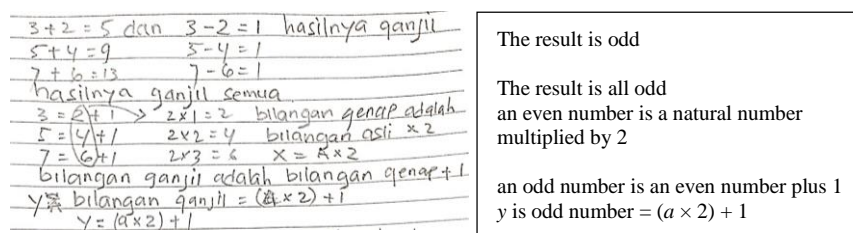 3 + 2 = 5 dan 3 - 2 = 1 hasilnya ganjil
5 + 4 = 9 5 - 4 = 1
7 + 6 = 13 7 - 6 = 1
hasilnya ganjil semua
3 = 2 + 1 2 x 1 = 2 bilangan genap adalah
5 = 4 + 1 2 x 2 = 4 bilangan asli x 2
7 = 6 + 1 2 x 3 = 6 X = A x 2
bilangan ganjil adalah bilangan genap + 1
y bilangan ganjil = (a x 2) + 1
y = (a x 2) + 1
The result is odd
The result is all odd
an even number is a natural number
multiplied by 2
an odd number is an even number plus 1
y is odd number = (a × 2) + 1